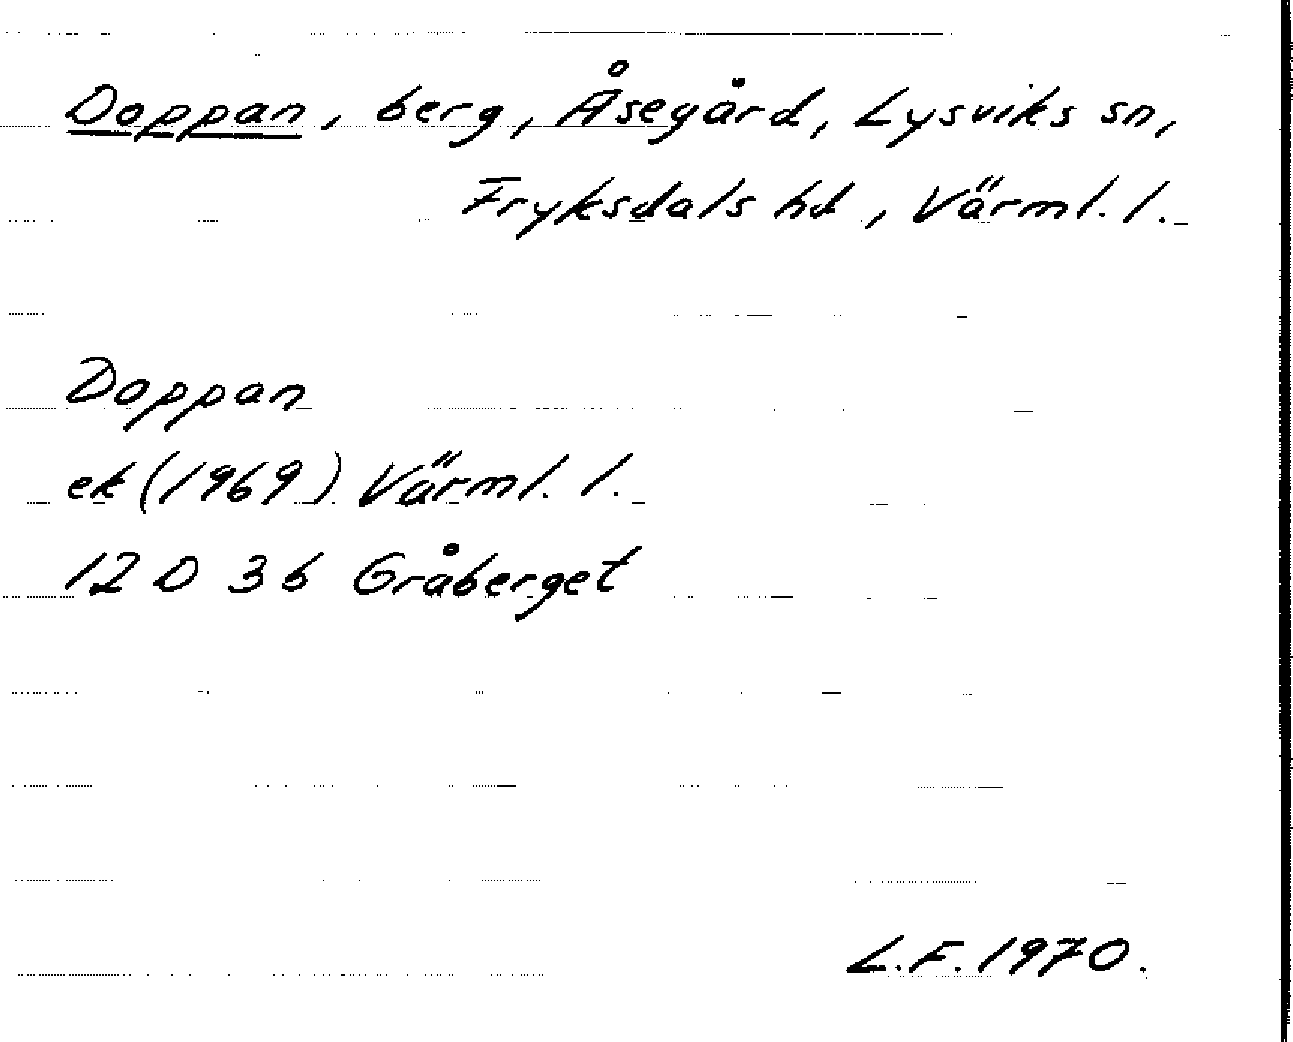 Doppan, berg, Åsegård, Lysviks sn,
Fryksdals hd, Värml. l.
Doppan
ek (1969) Värml. l.
12 D 3 b Gråberget
L.F. 1970.